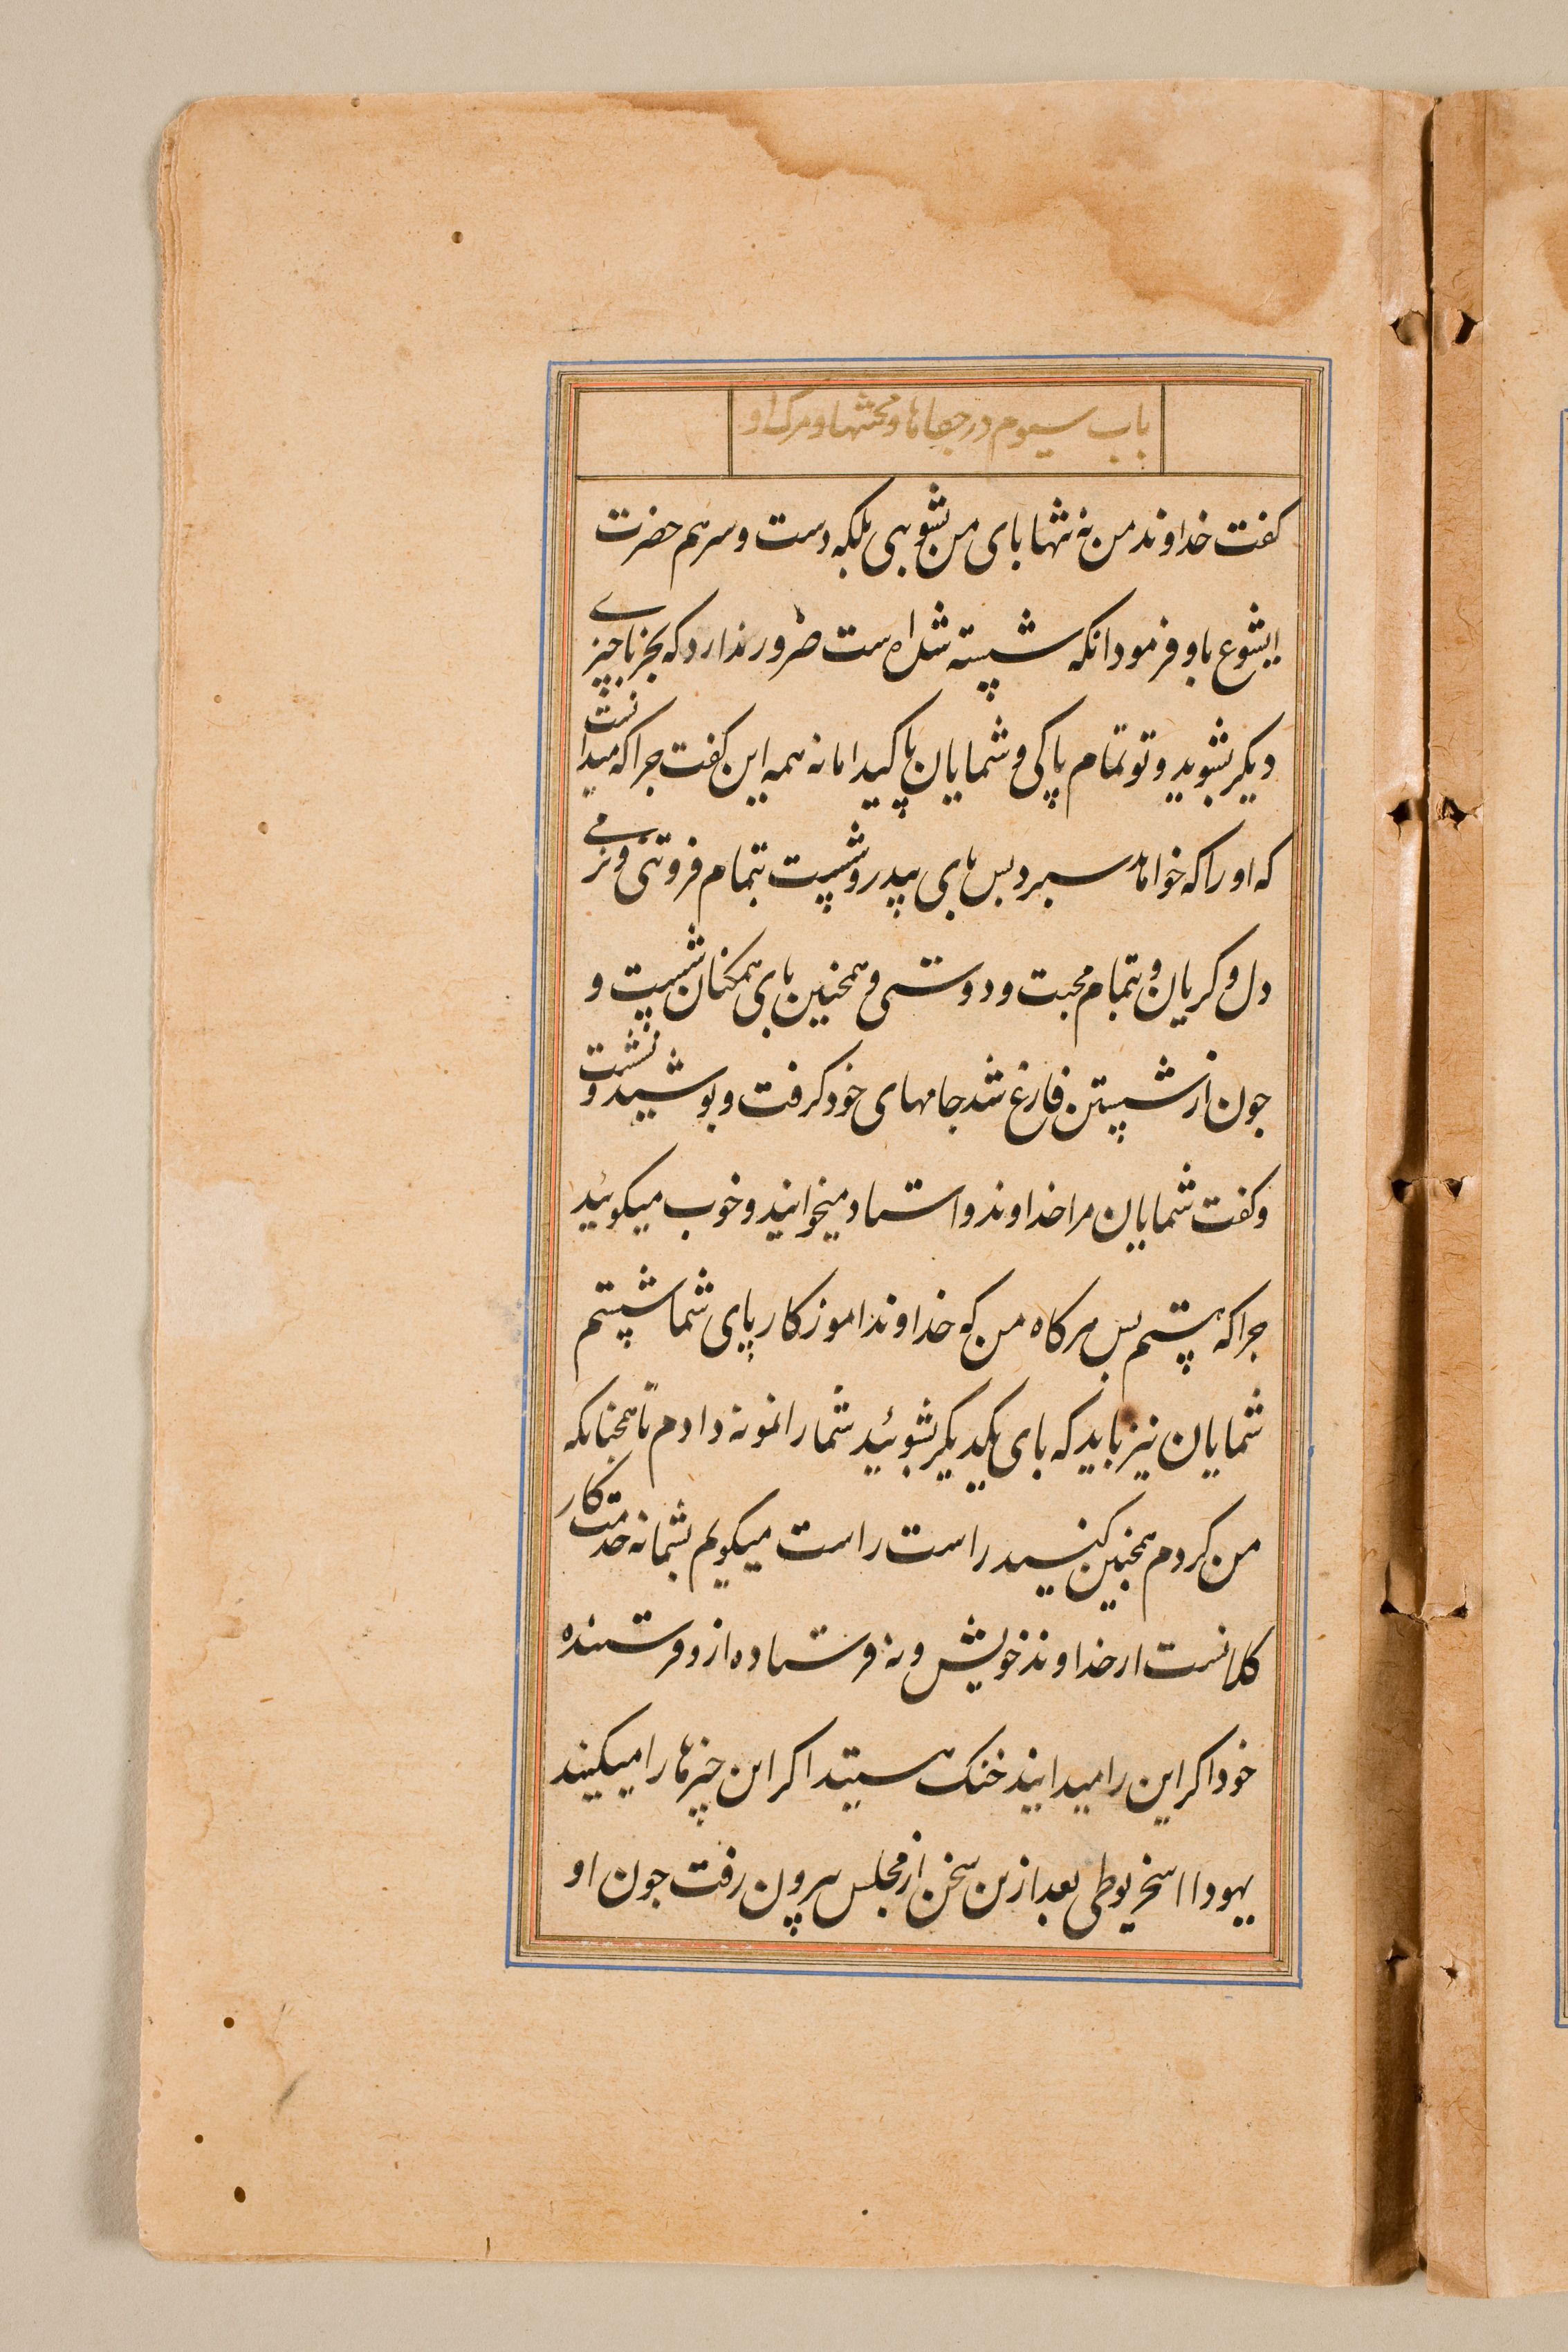 باب سیوم در جفاها و محنتها و مرگ او
کفت خداوند من نه تنها بای من بشویی بلکه دست و سر هم حضرت
ایشوع باو فرمود انکه شسپته شده است ضرور ندارد که بجز پا چیزے
دیکر بشوید و تو تمام پاکی و شمایان پاکید اما نه همه این کفت جرا که میدانست
که او را که خواهد سبرد بس بای پیدرو شسپت بتمام فروتنی و نرمے
دل و کریان و بتمام محبت و دوستی و همجنین بای همکنان شسپت و
جون از شسپتن فارغ شد جامهای خود کرفت و بوشید و نشست
و کفت شمایان مرا خداوند و استاد میخوانید و خوب میکوئید
جرا که هستم بس هرکاه من که خداوند اموزکار پای شما شسپتم
شمایان نیز باید که بای یکدیکر بشوئید شما را نمونه دادم تا همجنانکه
من کردم همجنین کنید راست راست میکویم بشما نه خدمتکار
کلانست از خداوند خویش و نه فرستاده از و فرستنده
خود اکر این را میدانید خنک هستید اکر این چیزها را میکنید
یهودا اسخریوطی بعد ازین سخن از مجلس بیرون رفت جون او